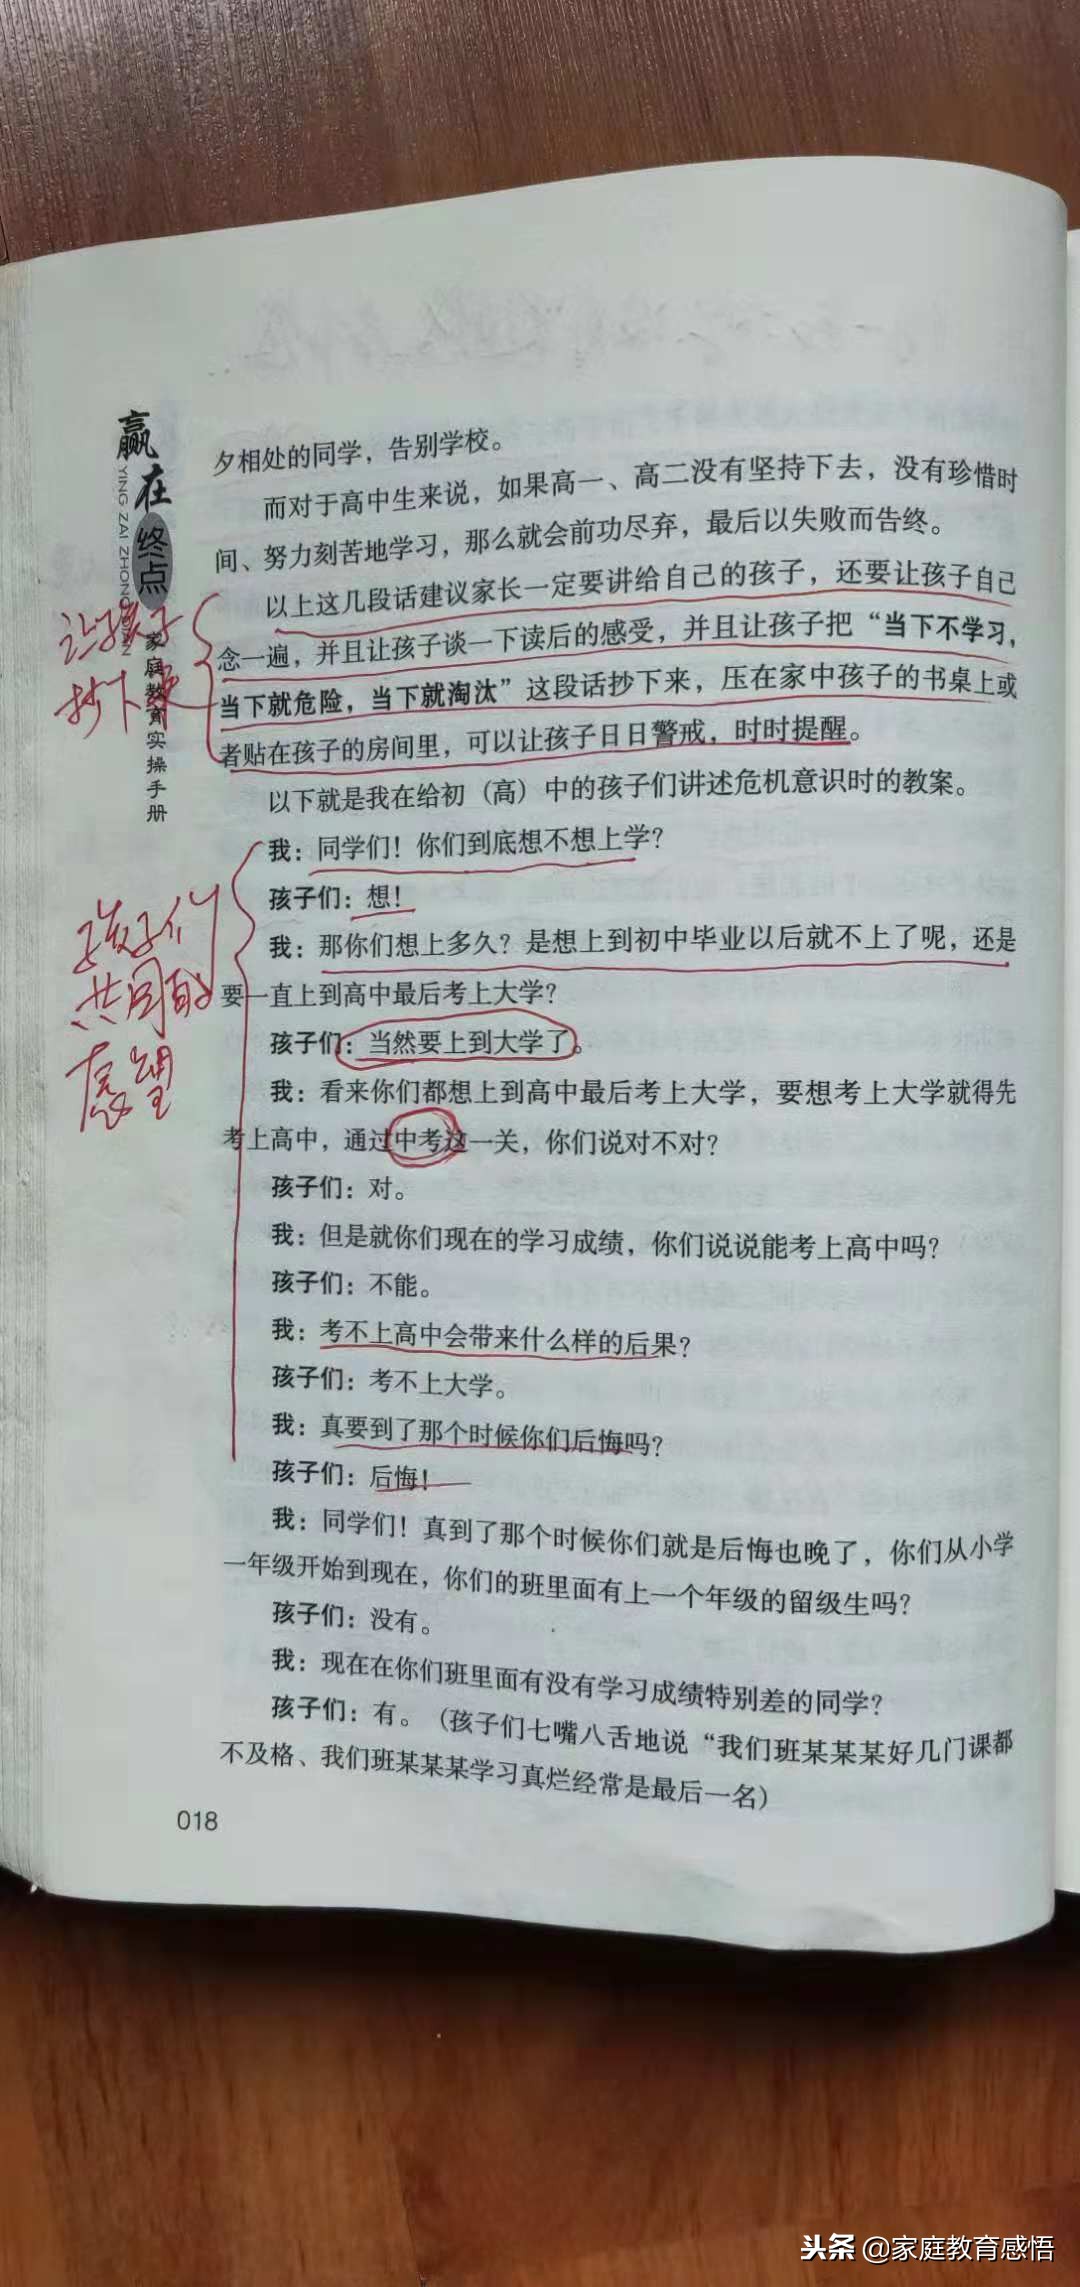 赢在终点
YING ZAI ZHONG
家庭教育实操手册
夕相处的同学，告别学校。
而对于高中生来说，如果高一、高二没有坚持下去，没有珍惜时
间、努力刻苦地学习，那么就会前功尽弃，最后以失败而告终。
以上这几段话建议家长一定要讲给自己的孩子，还要让孩子自己
念一遍，并且让孩子谈一下读后的感受，并且让孩子把“当下不学习，
当下就危险，当下就淘汰”这段话抄下来，压在家中孩子的书桌上或
者贴在孩子的房间里，可以让孩子日日警戒，时时提醒。
让孩子
抄下来
以下就是我在给初（高）中的孩子们讲述危机意识时的教案。
我：同学们！你们到底想不想上学？
孩子们：想！
我：那你们想上多久？是想上到初中毕业以后就不上了呢，还是
要一直上到高中最后考上大学？
孩子们：当然要上到大学了。
孩子们
共同的
愿望
我：看来你们都想上到高中最后考上大学，要想考上大学就得先
考上高中，通过中考这一关，你们说对不对？
孩子们：对。
我：但是就你们现在的学习成绩，你们说说能考上高中吗？
孩子们：不能。
我：考不上高中会带来什么样的后果？
孩子们：考不上大学。
我：真要到了那个时候你们后悔吗？
孩子们：后悔！
我：同学们！真到了那个时候你们就是后悔也晚了，你们从小学
一年级开始到现在，你们的班里面有上一个年级的留级生吗？
孩子们：没有。
我：现在在你们班里面有没有学习成绩特别差的同学？
孩子们：有。（孩子们七嘴八舌地说“我们班某某某好几门课都
不及格、我们班某某某学习真烂经常是最后一名）
018
头条 @家庭教育感悟